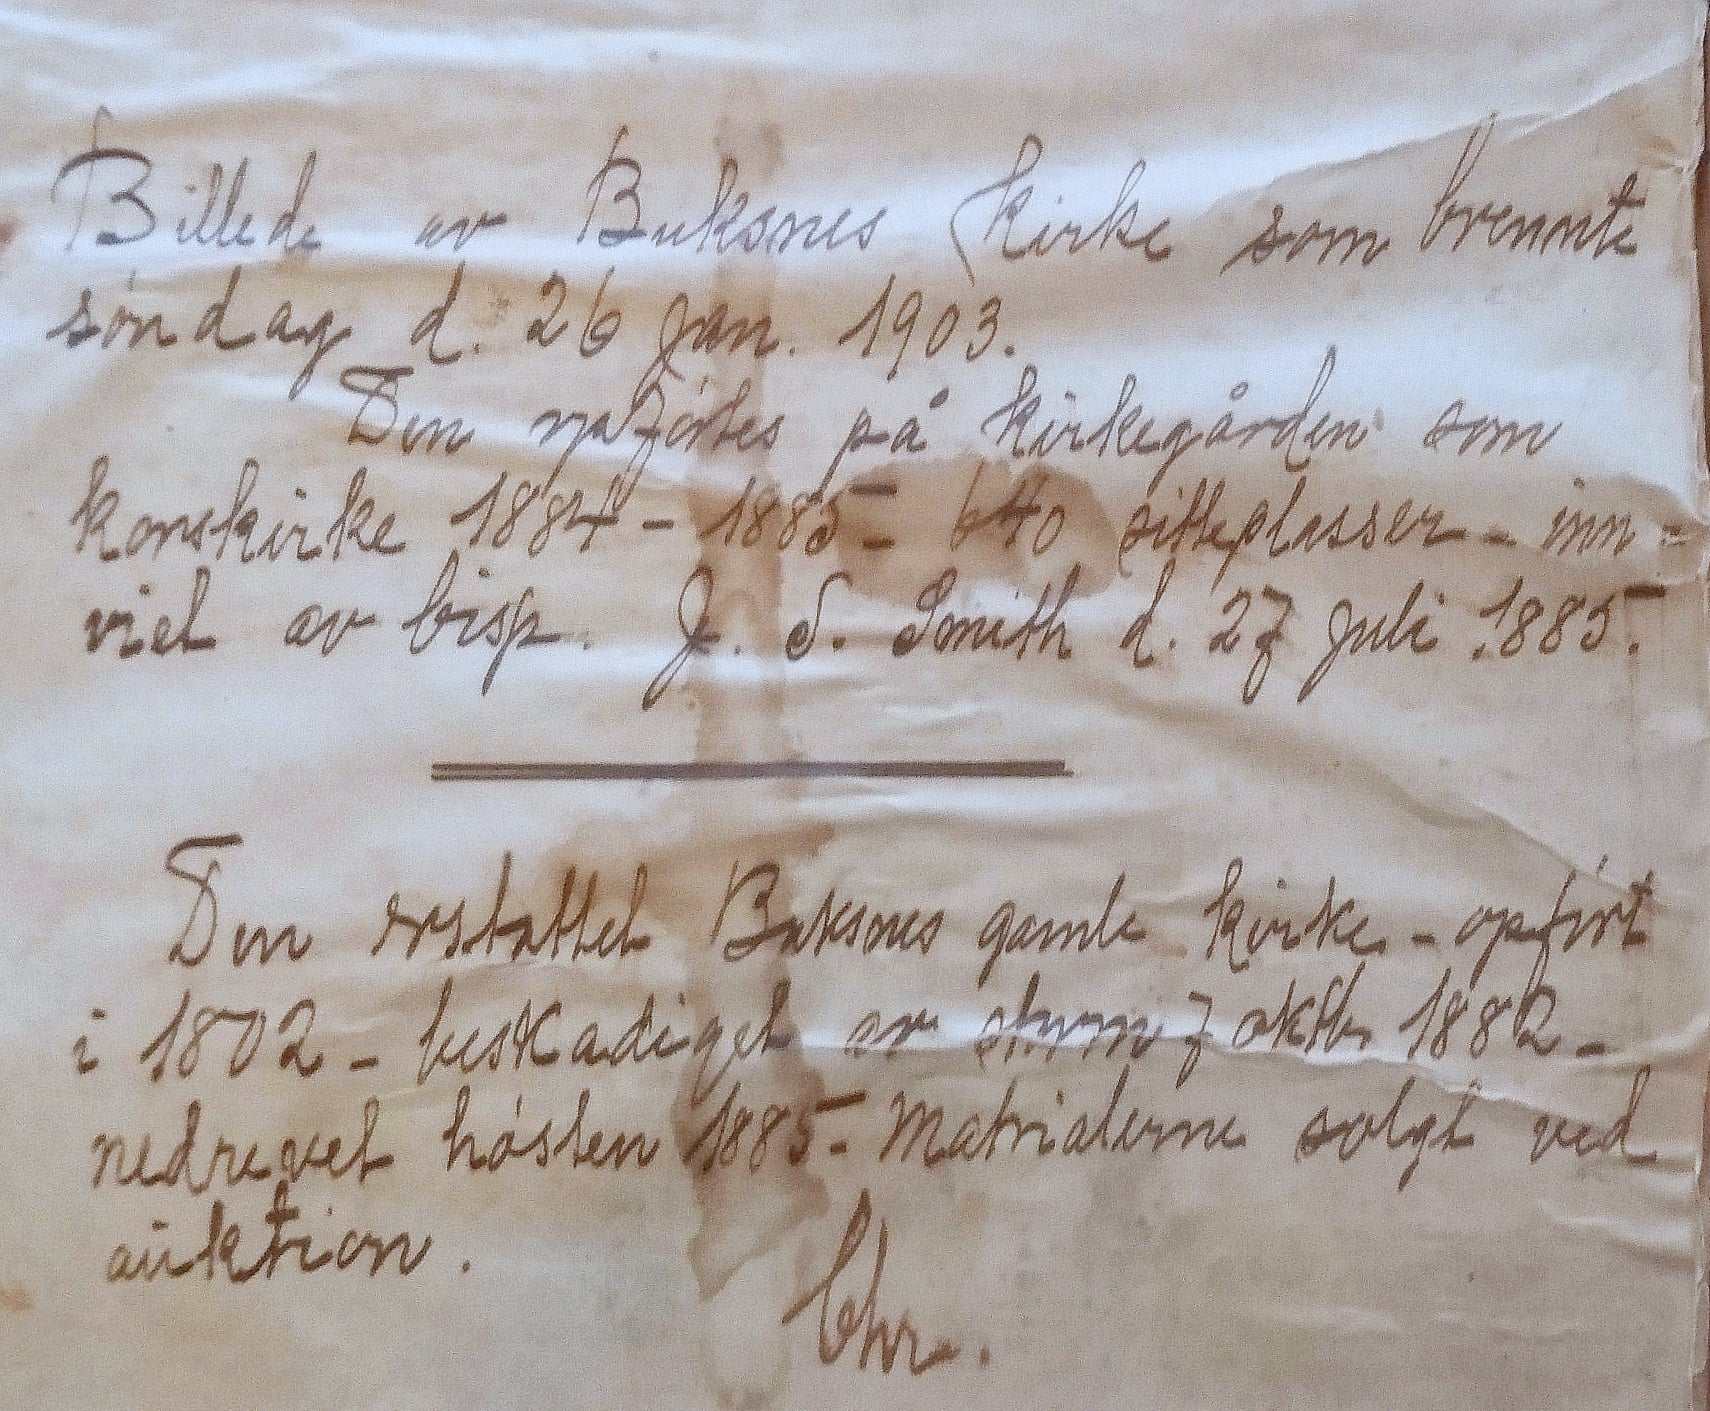 Billede av Buksnes kirke som brennte
søndag d. 26 jan. 1903.
Den opførtes på kirkegården som
korskirke 1884 - 1885 - 640 sitteplasser - inn-
viet av bisp. J. S. Smith d. 27 juli 1885.
Den erstattet Buksnes gamle kirke - opført
i 1802 - beskadiget av storm 7 oktb. 1882 -
nedrevet høsten 1885 - Matrialerne solgt ved
auktion.
Chr.